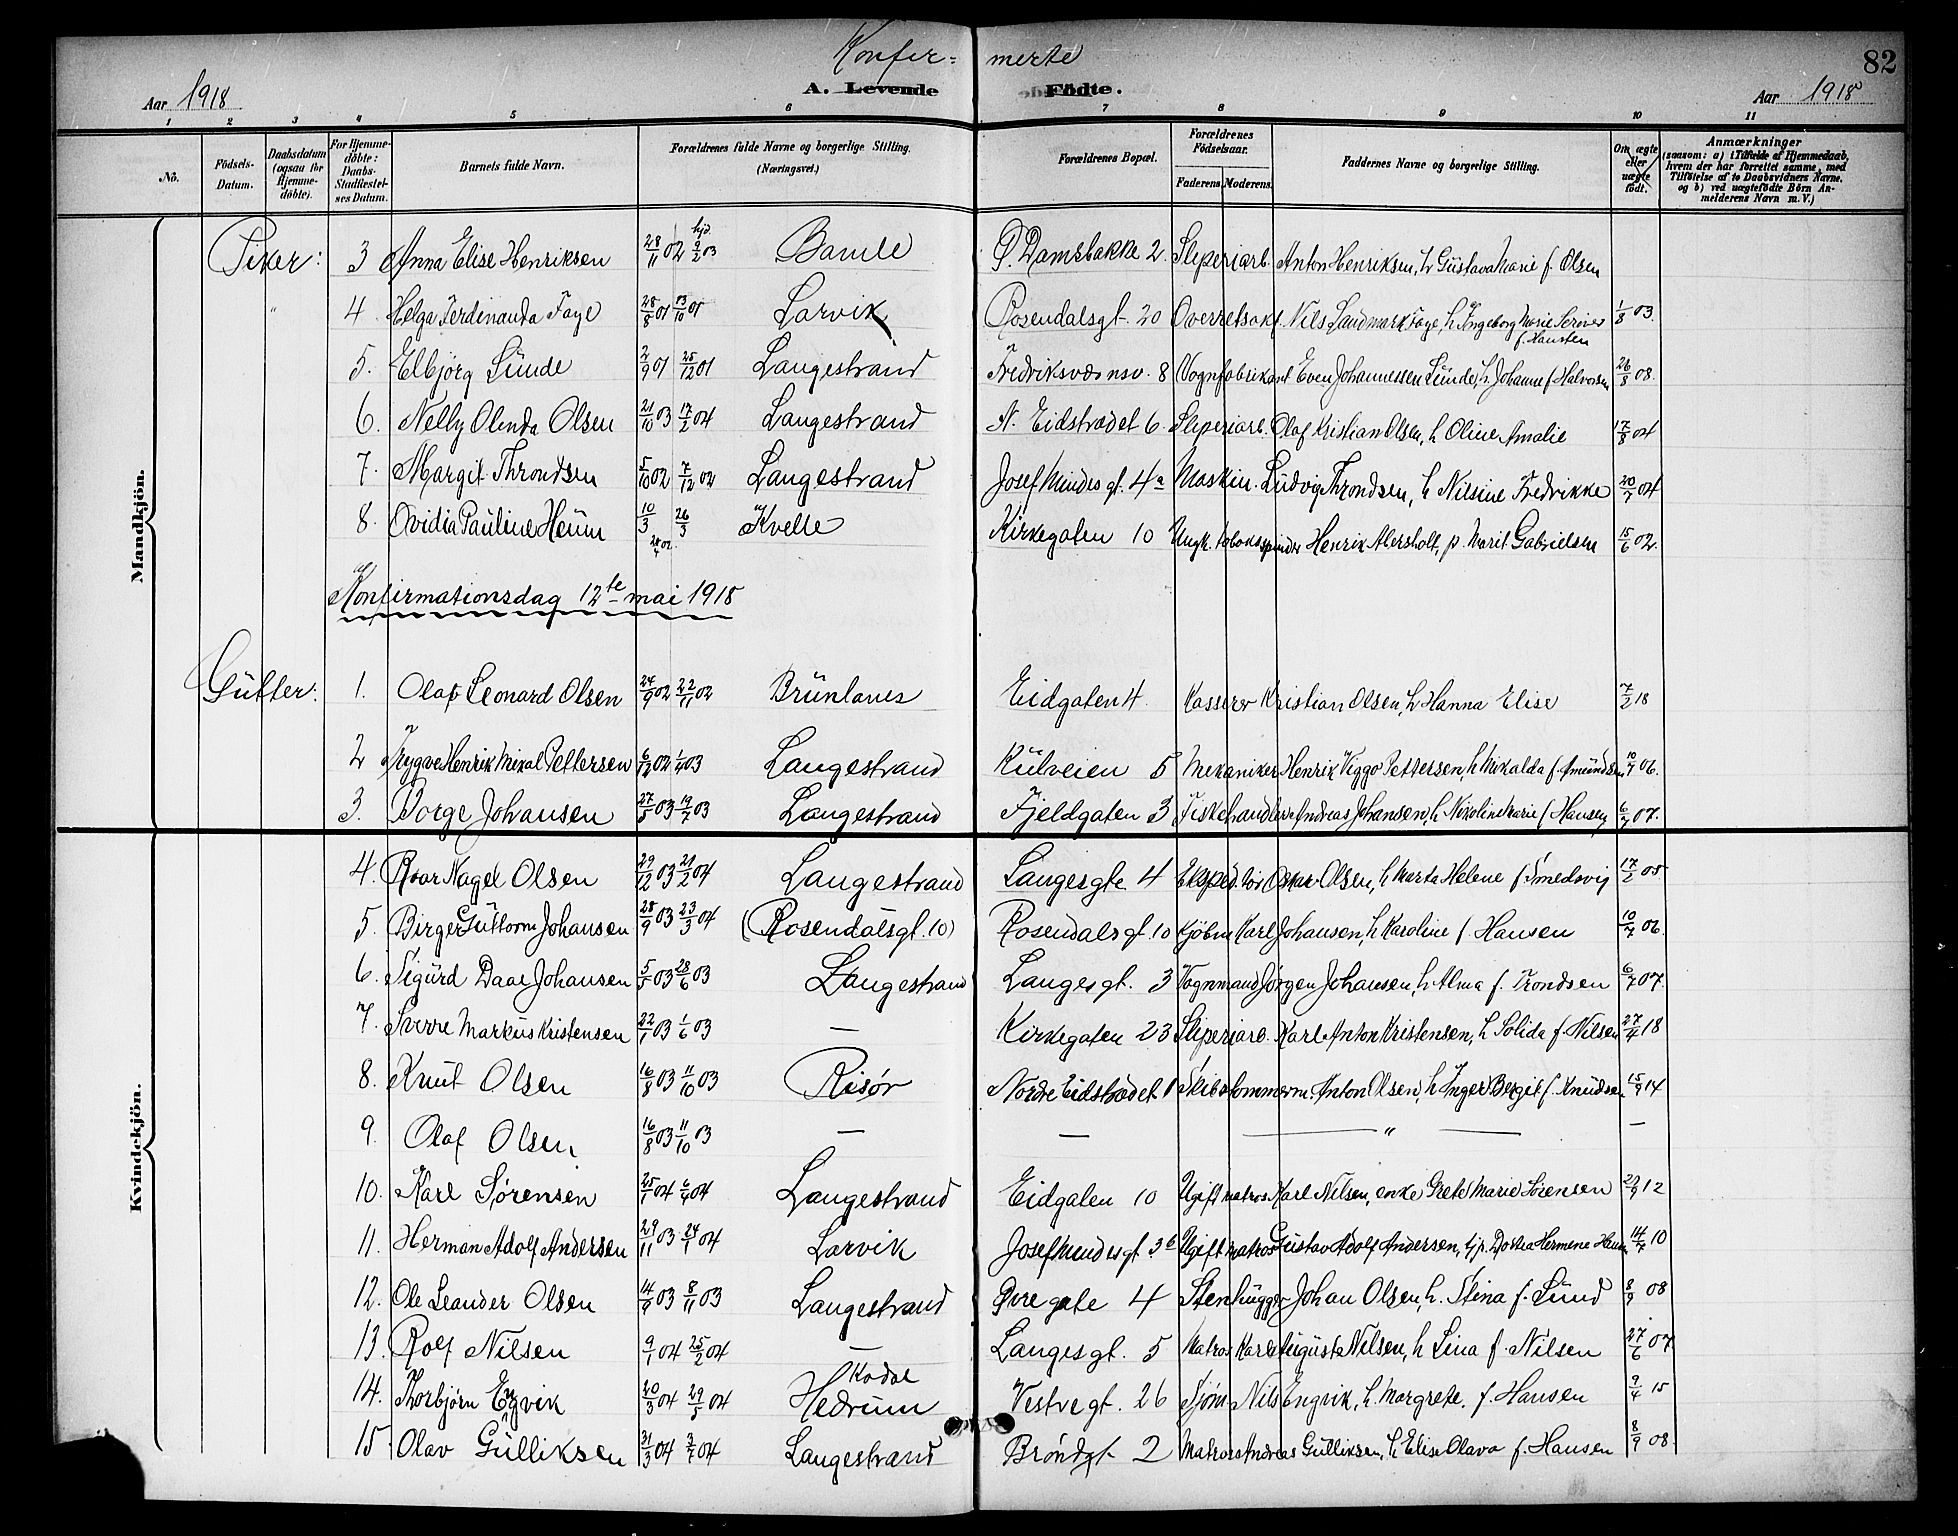 Konfir= merte 82
Aar 1918 A. Levende Födte. Aar 1918
1 2 3 4 5 6 7 8 9 10 11
No. Födsels-Datum. Daabsdatum (ogsaa for Hjemme-döbte). For Hjemme-döbte: Daabs-Stadfæstel-ses Datum. Barnets fulde Navn. Forældrenes fulde Navne og borgerlige Stilling. (Næringsvei.) Forældrenes Bopæl. Forældrenes Födselsaar. Faderens. Moderens. Faddernes Navne og borgerlige Stilling. Om ægte eller uægte födt. Anmærkninger (saasom: a) i Tilfælde af Hjemmedaab, hvem der har forrettet samme, med Tilföielse af to Daabsvidners Navne, og b) ved uægtefödte Börn An-melderens Navn m. V.)
Mandkjön.
Piker: 3 Anna Elise Henriksen 28/11 02 hjd. 9/2 03 Bamle P. Damsbakke 2 Sliperiarb. Anton Henriksen, h Gustava Marie f. Olsen
" 4. Helga Ferdinanda Faye 28/8 01 13/10 01 Larvik Rosendalsgt. 20 Overretsakf. Nils Landmark Faye, h Ingeborg Marie f. Hansten 1/8 03.
5. Elbjörg Sünde 2/9 01 25/12 01 Langestrand Fredriksværnsv. 8 Vognfabrikant Even Johannessen Sünde, h. Johanne f Halvorsen 26/8 08.
6. Nelly Olenda Olsen 21/10 03 17/2 04 Langestrand N. Eidstrædet 6. Sliperiarb. Olaf Kristian Olsen, h Oline Amalie 17/8 04
7. Margit Throndsen 5/10 02 7/12 02 Langestrand Josef Mindes gt. 4a Maskin. Ludvig Throndsen, h Nilsine Fredrikke 20/7 04
8. Ovidia Pauline Heüm 10/3 26/3 Kvelle Kirkegaten 10 Ungk. tobakspinder Henrik Abersholt, p. Marit Gabrielsen 15/6 02.
Konfirmationsdag 12te mai 1918
Gütter: 1. Olaf Leonard Olsen 24/9 02 22/11 02 Brünlanes Eidgaten 4. Kasserer Kristian Olsen, h Hanna Elise 7/2 18
2 Trygve Henrik Mikal Pettersen 6/12 02 1/4 03 Langestrand Külveien 5 Mekaniker Henrik Viggo Pettersen, h Mikalda f. Amündsen 10/7 06.
3. Borge Johansen 27/5 03 19/7 03 Langestrand Fjeldgaten 3 Fiskehandler Andreas Johansen, h Nikoline Marie f Hansen 6/7 07.
Kvindekjön.
4. Roar Nagel Olsen 29/12 03 21/2 04 Langestrand Langesgte 4 Eksped. Oskar Olsen, h Marta Helene f. Smedsvig 17/2 05
5. Birger Güttorm Johansen 28/9 03 23/3 04 (Rosendalsgt. 10) Rosendalsgt. 10 Kjöbm Karl Johansen, h Karoline f Hansen 10/7 06.
6. Sigürd Daae Johansen 5/5 03 28/6 03 Langestrand Langesgt. 3 Vognmand Jörgen Johansen, h Alma f. Trondsen 6/7 07.
7. Sverre Markus Kristensen 22/1 03 1/6 03 — Kirkegaten 23 Sliperiarb. Karl Anton Kristensen, h. Solida f. Nilsen 27/4 18
8. Knut Olsen 16/8 03 11/10 03 Risør Nordre Eidstrædet 1 Skibstømmerm. Anton Olsen, h Inger Bergit f. Knudsen 15/9 14
9. Olaf Olsen 16/8 03 11/10 03 — — — " — —
10. Karl Sørensen 25/1 04 6/4 04 Langestrand Eidgaten 10 Ugift matros Karl Nilsen, enke Grete Marie Sørensen 29/9 12
11. Herman Adolf Andersen 29/11 03 24/1 04 Larvik Josef Mindesgt. 3b Ugift matros Gustav Adolf Andersen, tjp. Dortea Hermene Hansen 14/7 10
12. Ole Leander Olsen 14/9 03 8/11 03 Langestrand Øvre gate 4 Stenhügger Johan Olsen, h. Stina f. Lünd 8/9 08
13. Rolf Nilsen 9/1 04 25/2 04 — Langesgt. 5 Matros Karl August Nilsen, h Lina f. Nilsen 27/6 07
14. Thorbjørn Engvik 20/3 04 29/5 04 Kodal Hedrum Vestregt. 26 Sjøm. Nils Engvik, h. Margrete f. Hansen 9/4 15
15. Olav Gülliksen 31/3 04 3/7 04 Langestrand Bröndgt. 2 Matros Andreas Gülliksen, h Elise Olava f. Hansen 8/9 08.